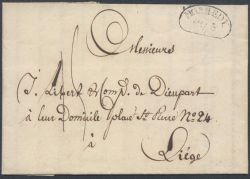 Messieurs
J. Libert & Comp. de Dieupart
à leur Domicile place St Pierre No 24
à
Liége